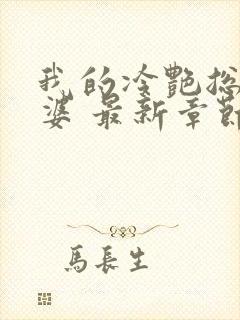 我的冷艷总
婆 最新章節
馬長生